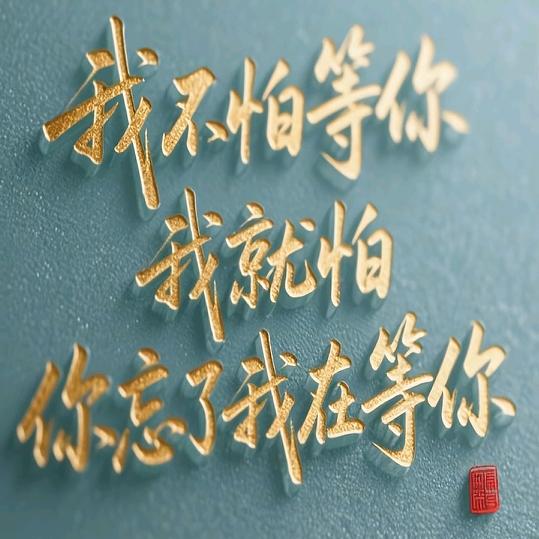 我不怕等你
我就怕
你忘了我在等你